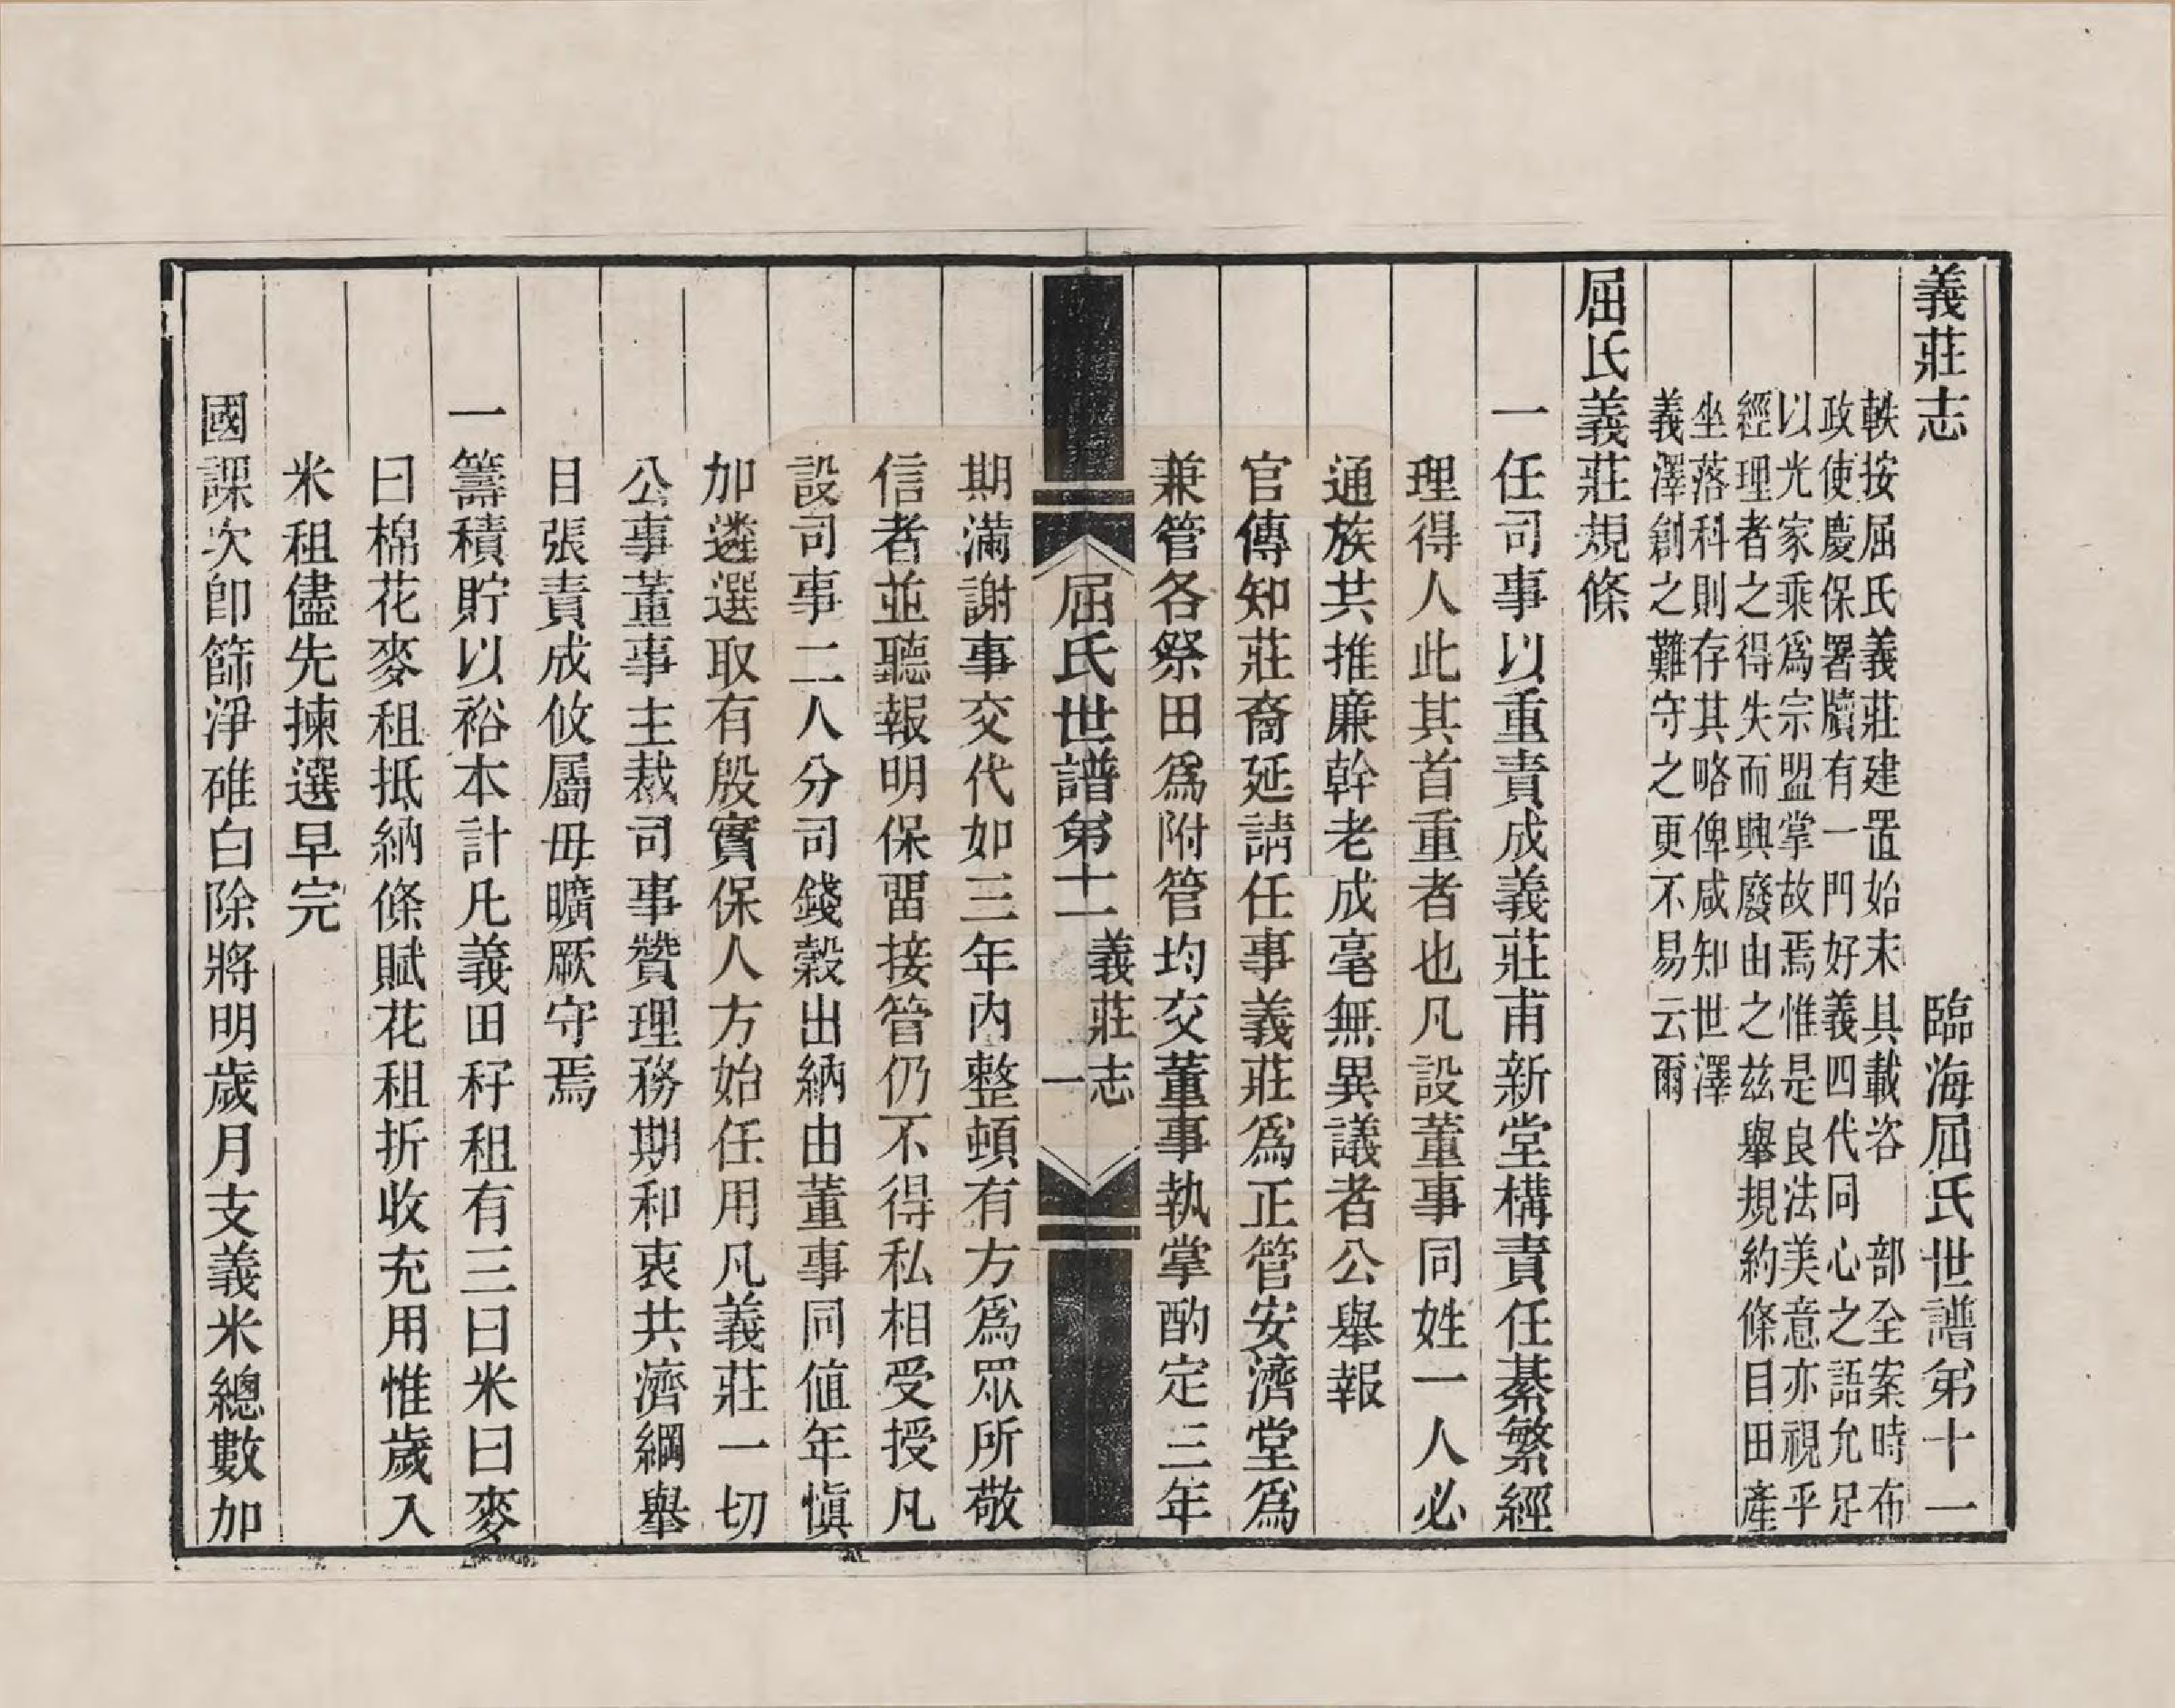 義莊志　臨海屈氏世譜第十一
軼按屈氏義莊建置始末具載咨　部全案時布
政使慶保署牘有一門好義四代同心之語允足
以光家乘爲宗盟掌故焉惟是良法美意亦視乎
經理者之得失而興廢由之玆舉規約條目田產
坐落科則存其略俾咸知世澤
義澤創之難守之更不易云爾
屈氏義莊規條
一任司事以重責成義莊甫新堂構責任綦繁經
理得人此其首重者也凡設董事同姓一人必
通族共推廉幹老成毫無異議者公舉報
官傳知莊裔延請任事義莊爲正管安濟堂爲
兼管各祭田爲附管均交董事執掌酌定三年
屈氏世譜第十一　義莊志　一
期滿謝事交代如三年內整頓有方爲眾所敬
信者並聽報明保留接管仍不得私相受授凡
設司事二人分司錢穀出納由董事同値年愼
加遴選取有殷實保人方始任用凡義莊一切
公事董事主裁司事贊理務期和衷共濟綱舉
目張責成攸屬毋曠厥守焉
一籌積貯以裕本計凡義田秄租有三曰米曰麥
曰棉花麥租抵納條賦花租折收充用惟歲入
米租儘先揀選早完
國課次卽篩淨碓白除將明歲月支義米總數加